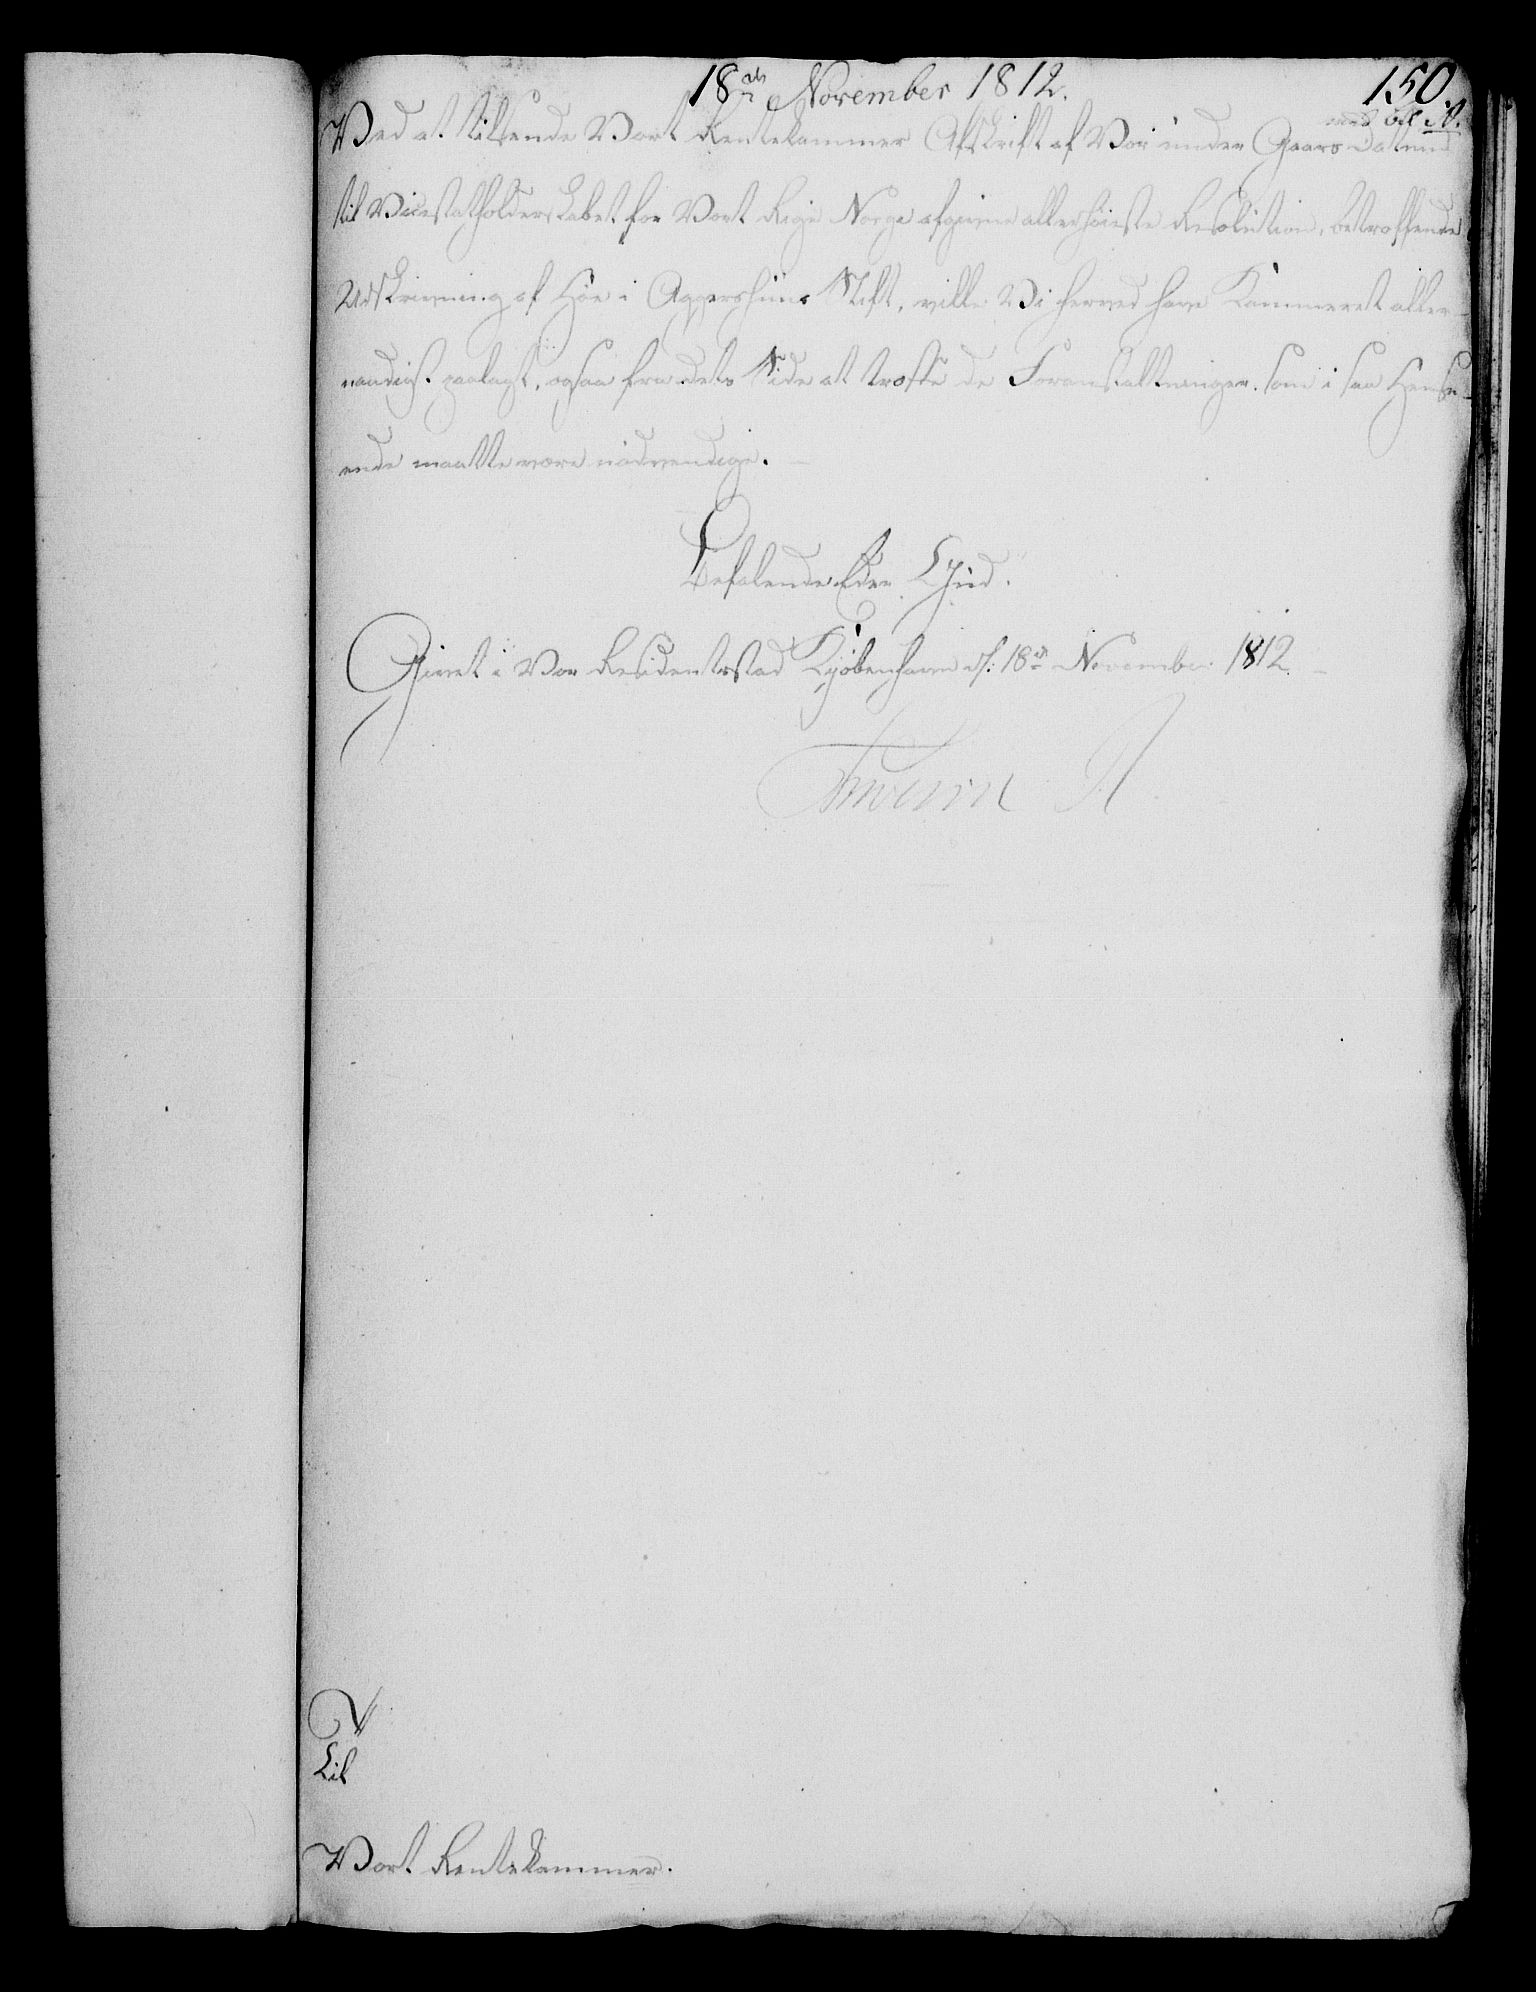 18de November 1812.
150.
med Bil. N.
Ved at tilsende Vort Rentekammer Afskrift af Vor under Gaars Datum
til Vicestatholderskabet for Vort Rige Norge afgivne allerhöieste Resolution, betreffende
Udskrivning af Höe i Aggershuus Stift, ville Vi herved have Kammeret aller-
naadigst paalagt, ogsaa fra dets Side at træffe de Foranstaltninger, som i saa Hense-
ende maatte være nödvendige.
Befalende Eder Gud.
Givet i Vor Residentsstad Kjöbenhavn d: 18de November 1812.
Frederik R
Til
Vort Rentekammer.